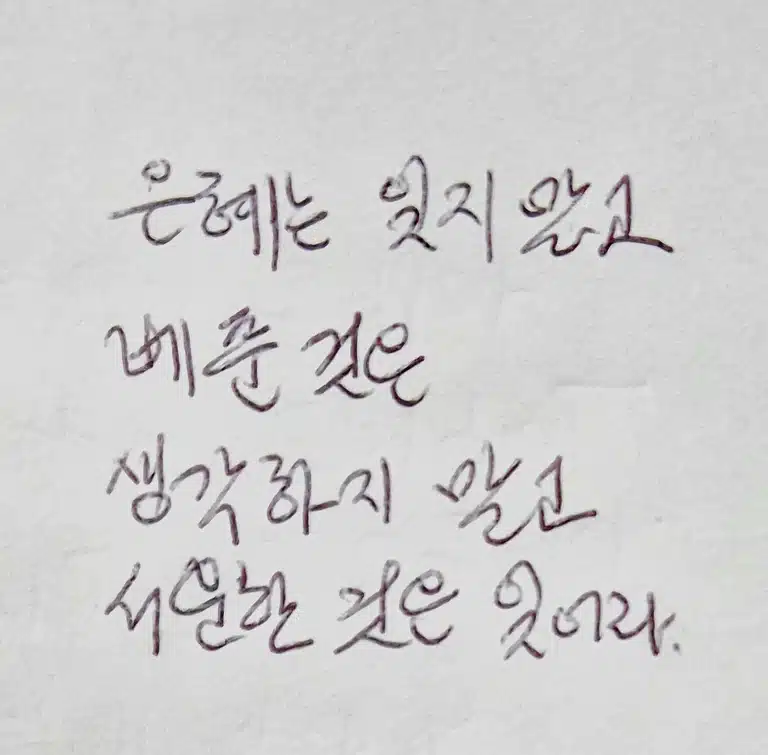 은혜는 잊지 말고
베푼 것은
생각하지 말고
서운한 것은 잊어라.